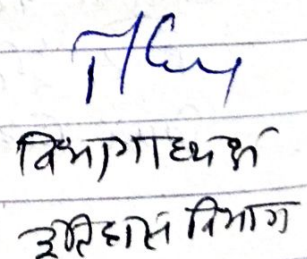 विभागाध्यक्ष
इतिहास विभाग